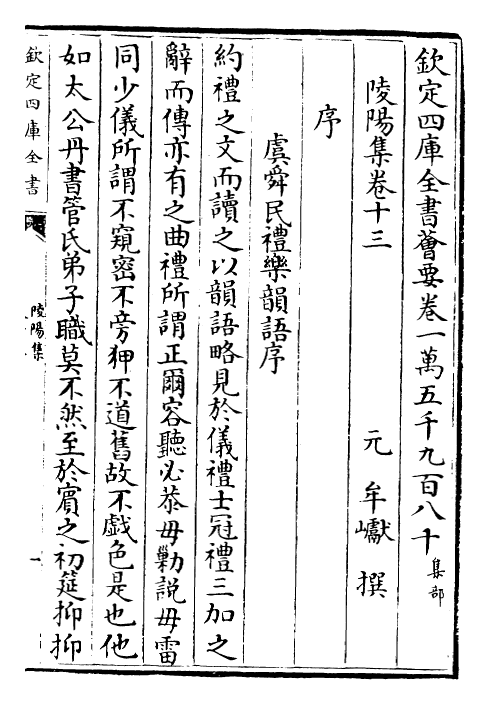 欽定四庫全書薈要卷一萬五千九百八十集部
陵陽集卷十三　元　牟巘　撰
序
虞舜民禮樂韻語序
約禮之文而讀之以韻語略見於儀禮士冠禮三加之
辭而傳亦有之曲禮所謂正爾容聽必恭毋勦説毋雷
同少儀所謂不窺密不旁狎不道舊故不戲色是也他
如太公丹書管氏弟子職莫不然至於賓之初筵抑抑
欽定四庫全書
陵陽集
一